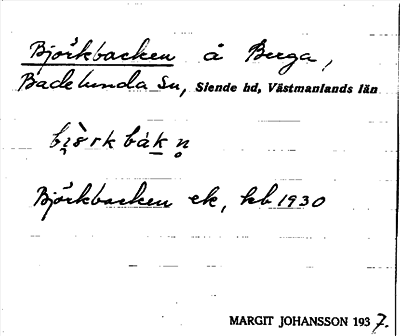 Björkbacken å Berga,
Badelunda Sn, Siende hd, Västmanlands län
bi̯ö̀rkbák n̥
Björkbacken ek, kb 1930
MARGIT JOHANSSON 1937.